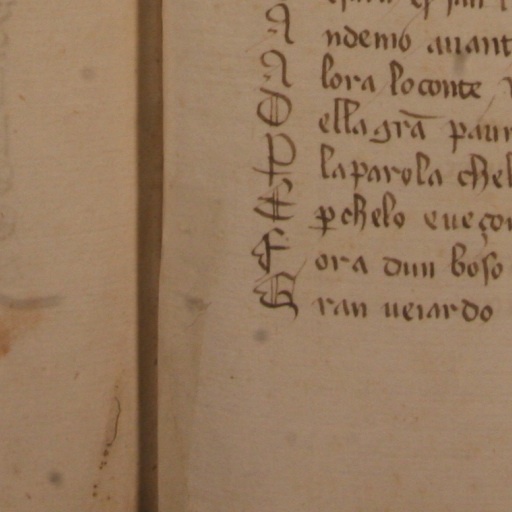 A ndemo auant
A lora loconte
D ella grā paur
D laparola chel
E ꝑchelo eueço
F ora dun boso
G ran ueiardo